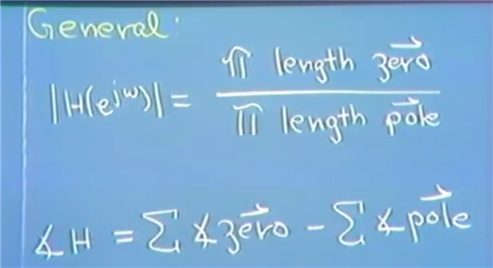 General:
|H(e^{jω})| = \frac{∏ length \vec{zero}}{∏ length \vec{pole}}
∡H = ∑∡\vec{zero} - ∑∡\vec{pole}